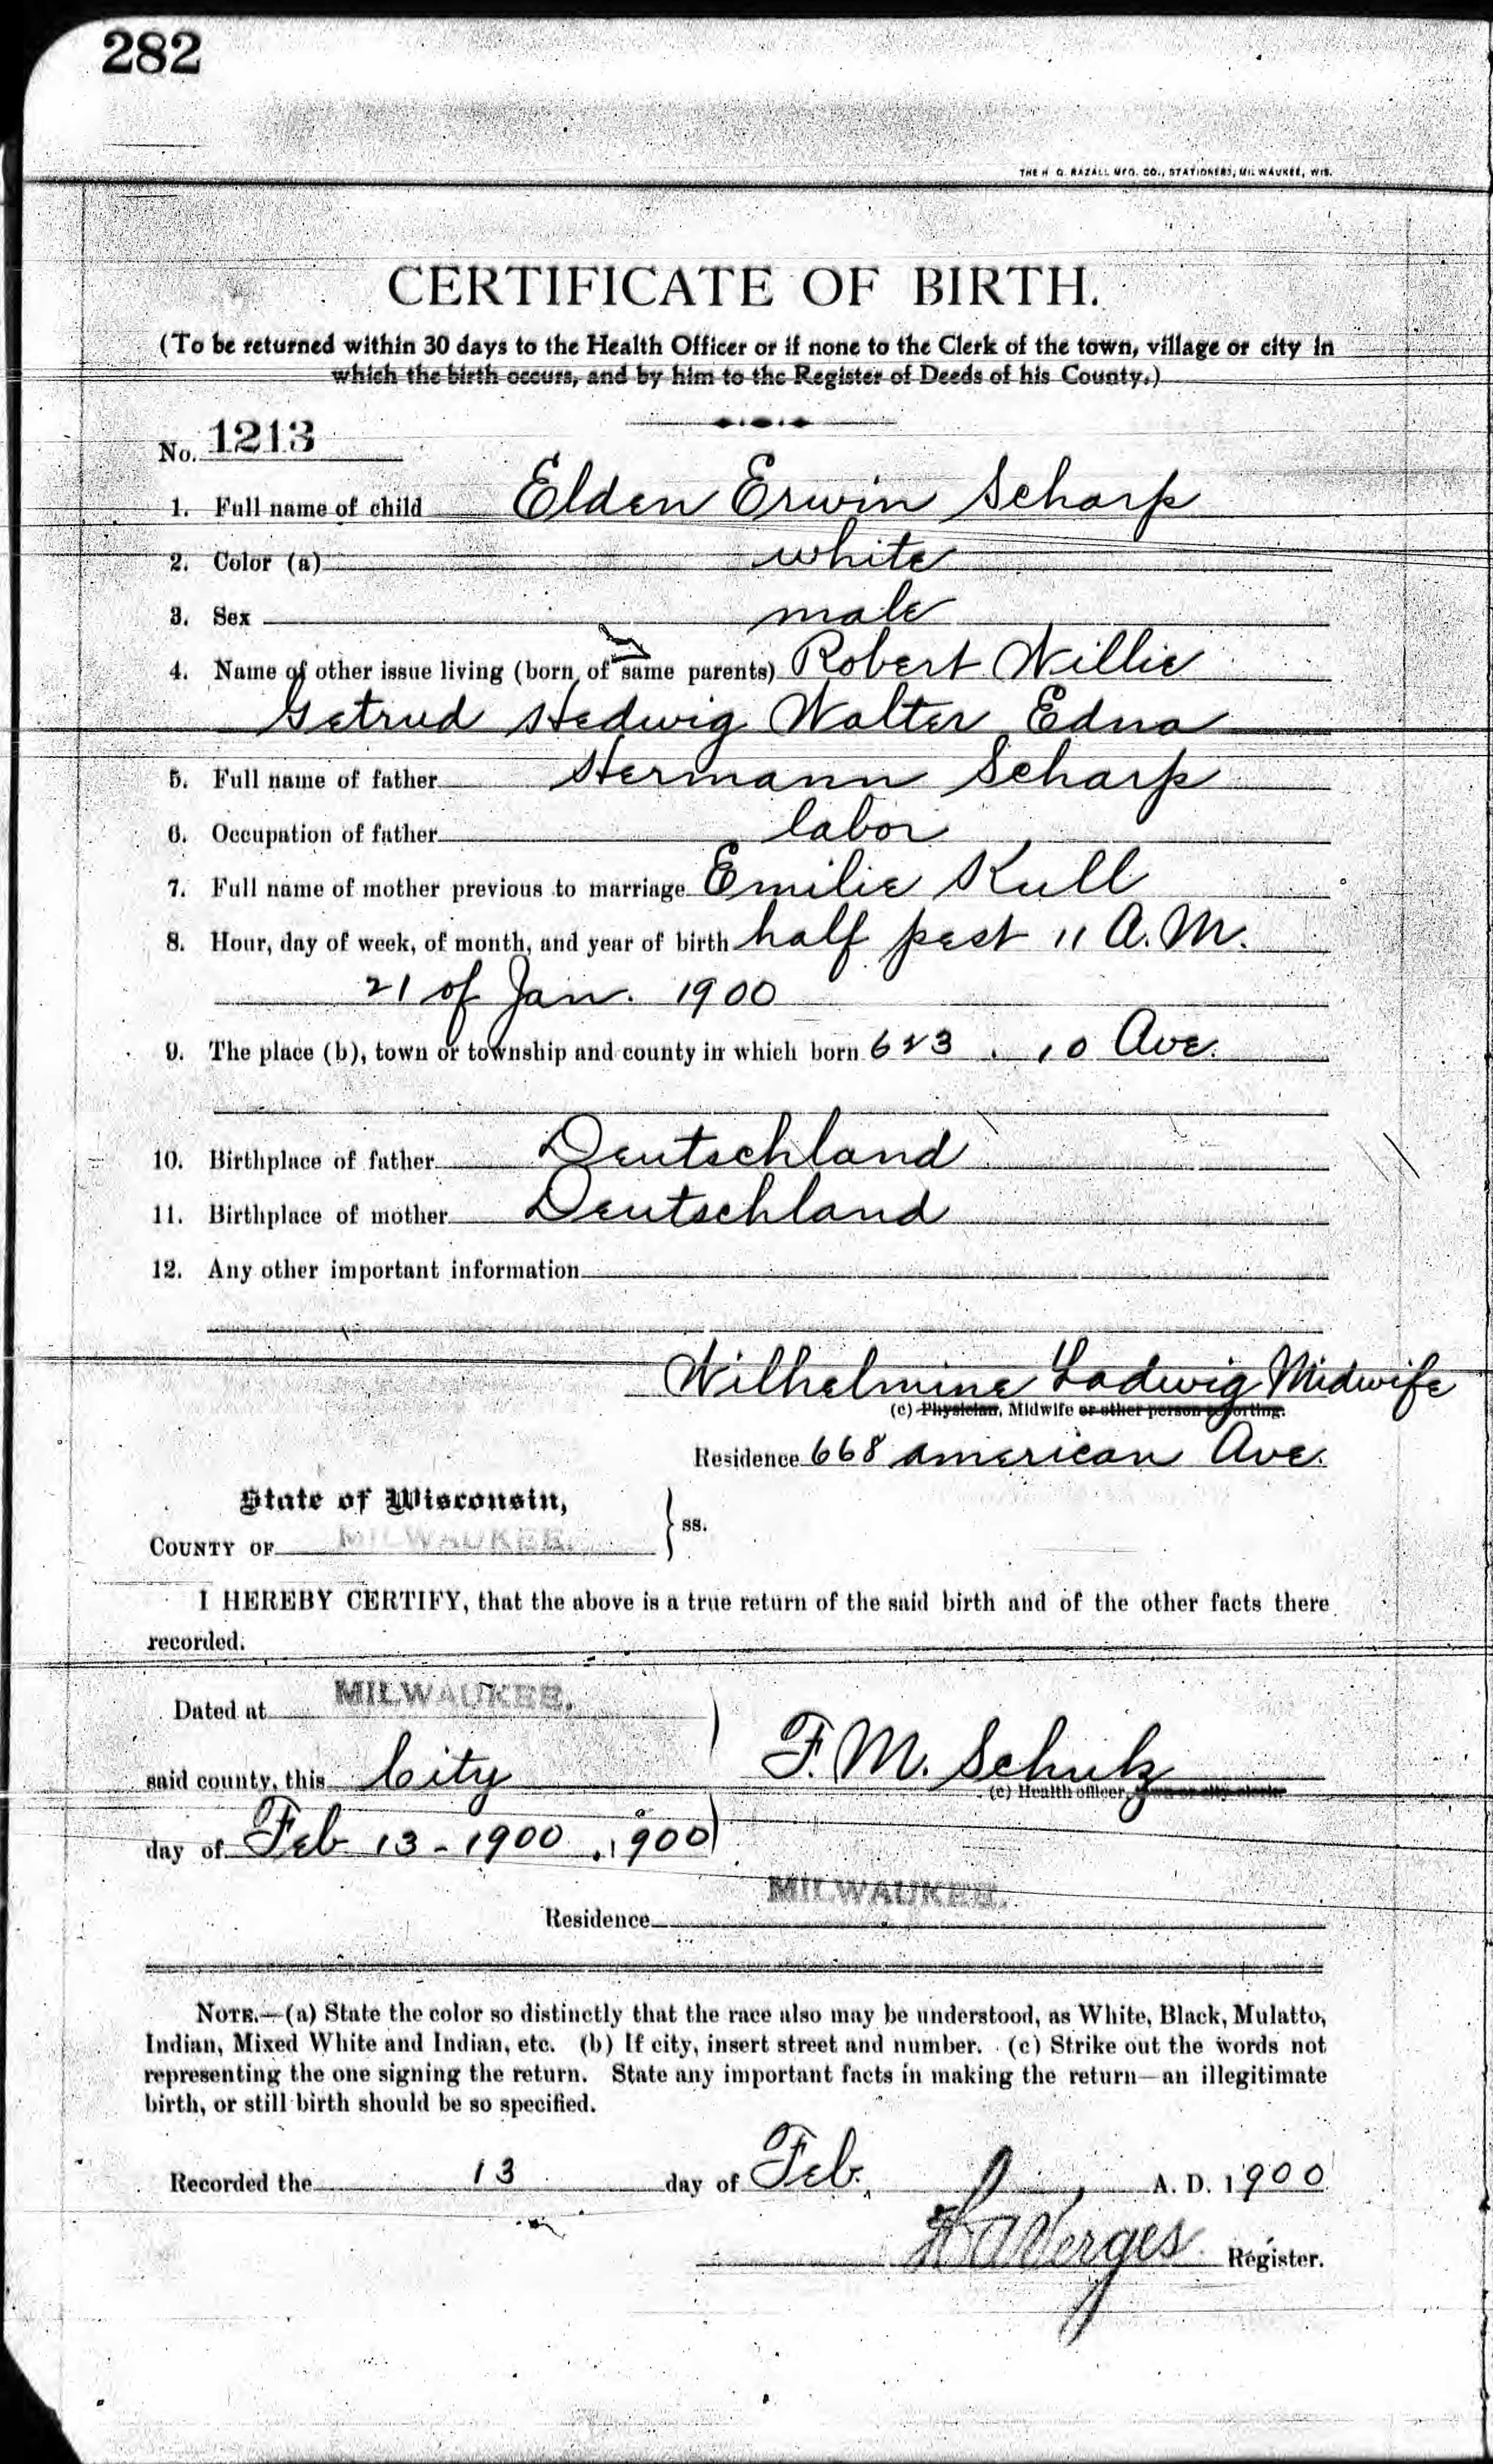 282
THE H. G. RAZALL MFG. CO., STATIONERS, MILWAUKEE, WIS.
CERTIFICATE OF BIRTH.
(To be returned within 30 days to the Health Officer or if none to the Clerk of the town, village or city in
which the birth occurs, and by him to the Register of Deeds of his County.)
No. 1213
1. Full name of child Elden Erwin Scharp
2. Color (a) white
3. Sex male
4. Name of other issue living (born of same parents) Robert Willie
Getrud Hedwig Walter Edna
5. Full name of father Hermann Scharp
6. Occupation of father labor
7. Full name of mother previous to marriage Emilie Kull
8. Hour, day of week, of month, and year of birth half past 11 A.M.
21 of Jan. 1900
9. The place (b), town or township and county in which born 623 . 10 Ave.
10. Birthplace of father Deutschland
11. Birthplace of mother Deutschland
12. Any other important information
Wilhelmine Ladwig Midwife
(c) Physician, Midwife or other person reporting.
Residence 668 American Ave.
State of Wisconsin,
COUNTY OF MILWAUKEE. } ss.
I HEREBY CERTIFY, that the above is a true return of the said birth and of the other facts there
recorded.
Dated at MILWAUKEE.
said county, this City F. M. Schulz
(c) Health officer, town or city clerk.
day of Feb 13 - 1900 , 1900
Residence MILWAUKEE.
NOTE.—(a) State the color so distinctly that the race also may be understood, as White, Black, Mulatto,
Indian, Mixed White and Indian, etc. (b) If city, insert street and number. (c) Strike out the words not
representing the one signing the return. State any important facts in making the return—an illegitimate
birth, or still birth should be so specified.
Recorded the 13 day of Feb. A. D. 1900
Verges Register.